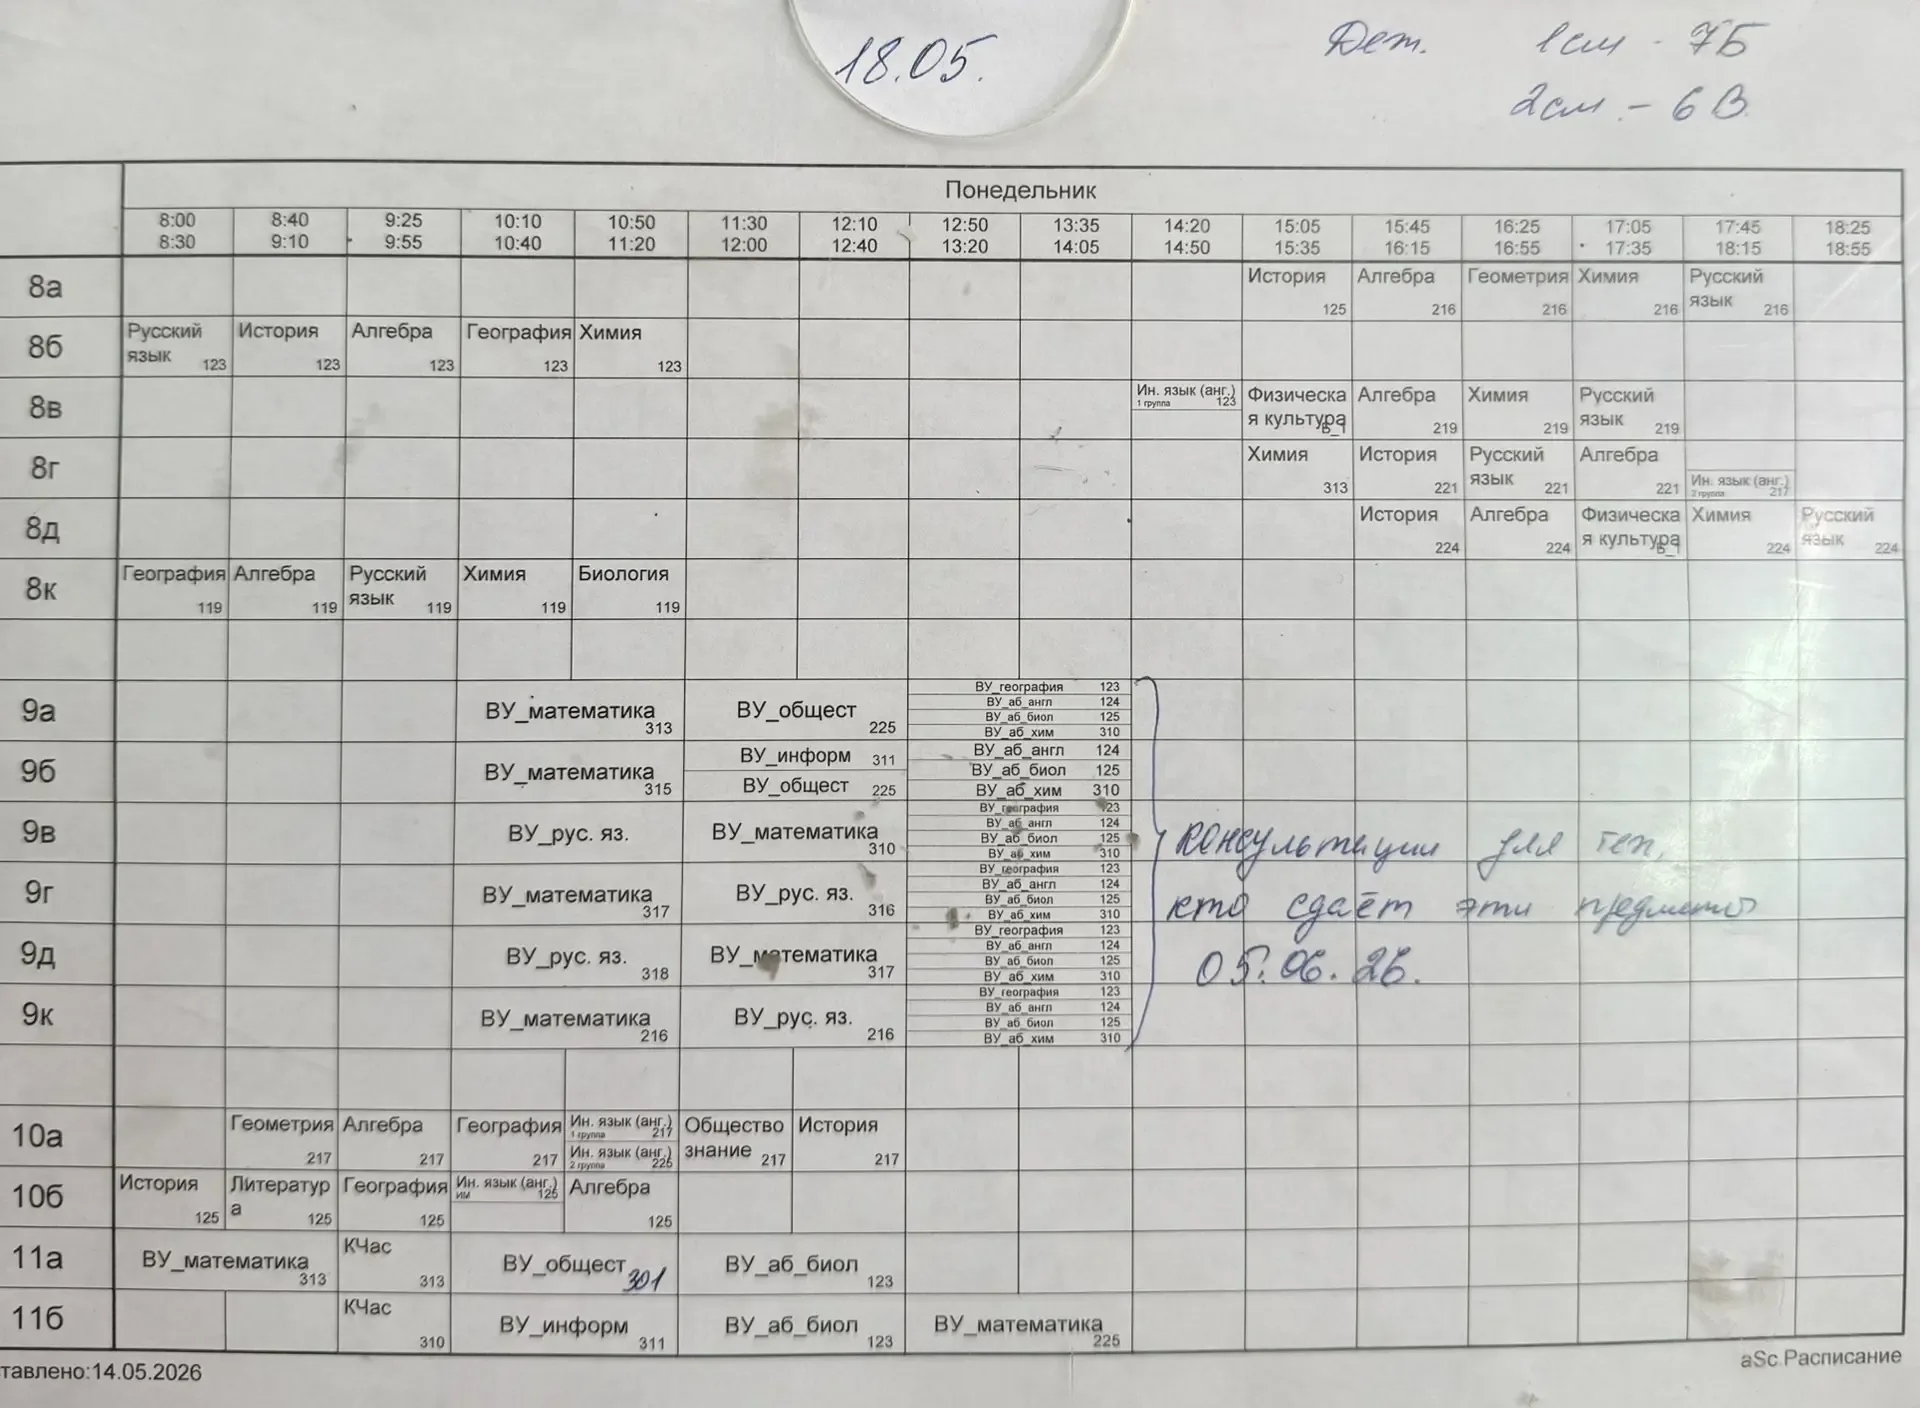 18.05.
Деж. 1см - 7Б
2см. - 6В
Понедельник
8:00 8:40 9:25 10:10 10:50 11:30 12:10 12:50 13:35 14:20 15:05 15:45 16:25 17:05 17:45 18:25
8:30 9:10 9:55 10:40 11:20 12:00 12:40 13:20 14:05 14:50 15:35 16:15 16:55 17:35 18:15 18:55
8а История 125 Алгебра 216 Геометрия 216 Химия 216 Русский язык 216
8б Русский язык 123 История 123 Алгебра 123 География 123 Химия 123
8в Ин. язык (анг.) 1 группа 123 Физическа я культура Б_1 Алгебра 219 Химия 219 Русский язык 219
8г Химия 313 История 221 Русский язык 221 Алгебра 221 Ин. язык (анг.) 2 группа 217
8д История 224 Алгебра 224 Физическа я культура Б_1 Химия 224 Русский язык 224
8к География 119 Алгебра 119 Русский язык 119 Химия 119 Биология 119
9а ВУ_математика 313 ВУ_общест 225
ВУ_география 123
ВУ_аб_англ 124
ВУ_аб_биол 125
ВУ_аб_хим 310
9б ВУ_математика 315 ВУ_информ 311
ВУ_общест 225
ВУ_аб_англ 124
ВУ_аб_биол 125
ВУ_аб_хим 310
9в ВУ_рус. яз. ВУ_математика 310
ВУ_география 123
ВУ_аб_англ 124
ВУ_аб_биол 125
ВУ_аб_хим 310
9г ВУ_математика 317 ВУ_рус. яз. 316
ВУ_география 123
ВУ_аб_англ 124
ВУ_аб_биол 125
ВУ_аб_хим 310
9д ВУ_рус. яз. 318 ВУ_математика 317
ВУ_география 123
ВУ_аб_англ 124
ВУ_аб_биол 125
ВУ_аб_хим 310
9к ВУ_математика 216 ВУ_рус. яз. 216
ВУ_география 123
ВУ_аб_англ 124
ВУ_аб_биол 125
ВУ_аб_хим 310
консультации для тех,
кто сдаёт эти предметы
05.06.26.
10а Геометрия 217 Алгебра 217 География 217 Ин. язык (анг.) 1 группа 217 Ин. язык (анг.) 2 группа 225 Общество знание 217 История 217
10б История 125 Литератур а 125 География 125 Ин. язык (анг.) ИМ 125 Алгебра 125
11а ВУ_математика 313 КЧас 313 ВУ_общест 301 ВУ_аб_биол 123
11б КЧас 310 ВУ_информ 311 ВУ_аб_биол 123 ВУ_математика 225
тавлено:14.05.2026 aSc Расписание